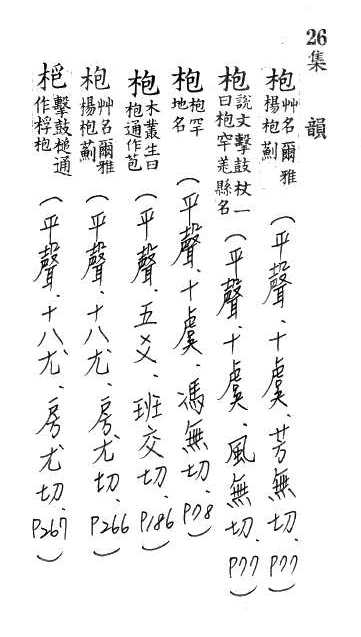 26 集韻
枹 艸名爾雅楊枹薊（平聲、十虞、芳無切、P77）
枹 說文擊鼓杖一曰枹罕羌縣名（平聲、十虞、風無切、P77）
枹 枹罕地名（平聲、十虞、馮無切、P78）
枹 木叢生曰枹通作苞（平聲、五爻、班交切、P186）
枹 艸名爾雅楊枹薊（平聲、十八尤、房尤切、P266）
桴 擊鼓槌通作桴枹（平聲、十八尤、房尤切、P267）